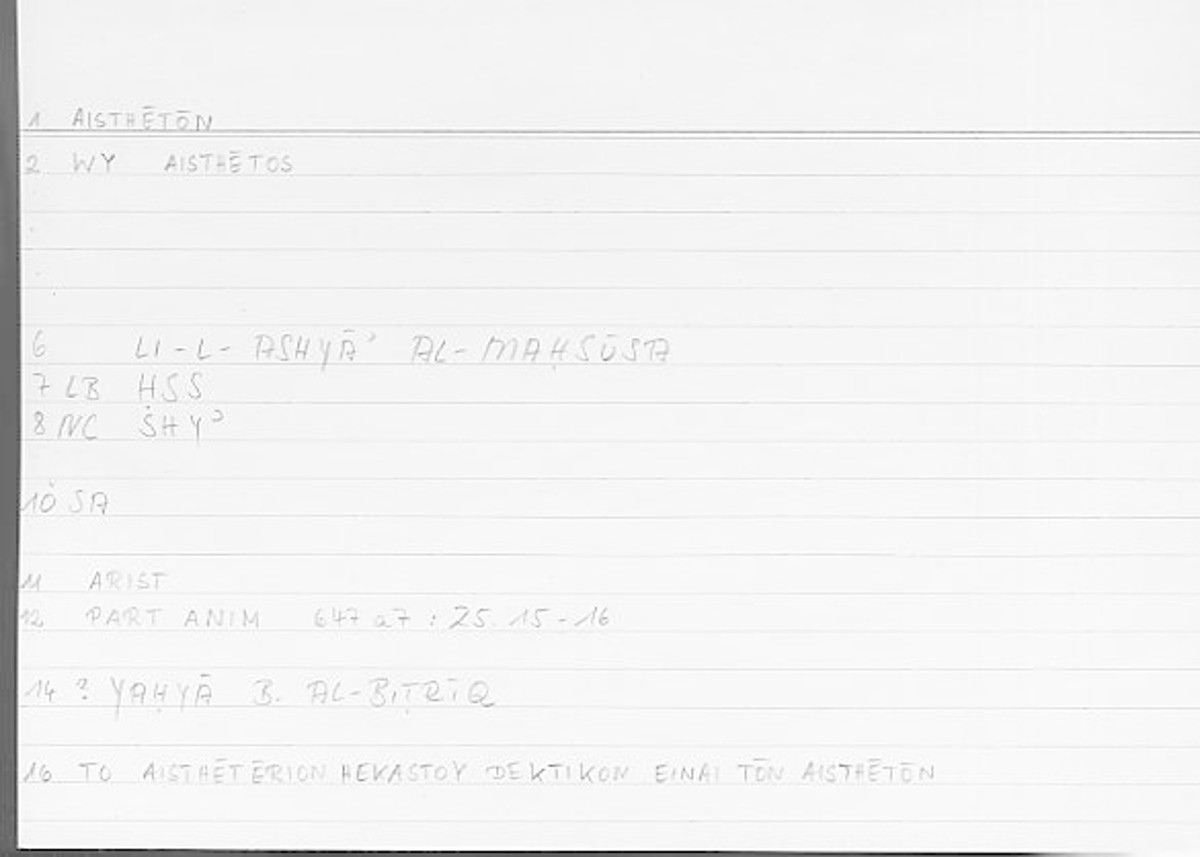 1 AISTHĒTŌN
2 WY AISTHĒTOS
6 LI-L-ASHYĀʾ AL-MAḤSŪSA
7 LB ḤSS
8 NC SHYʾ
10 SA
11 ARIST
12 PART ANIM 647a7 : 25.15-16
14 ? YAḤYĀ B. AL-BIṬRĪQ
16 TO AISTHĒTĒRION HEKASTOY DEKTIKON EINAI TŌN AISTHĒTŌN